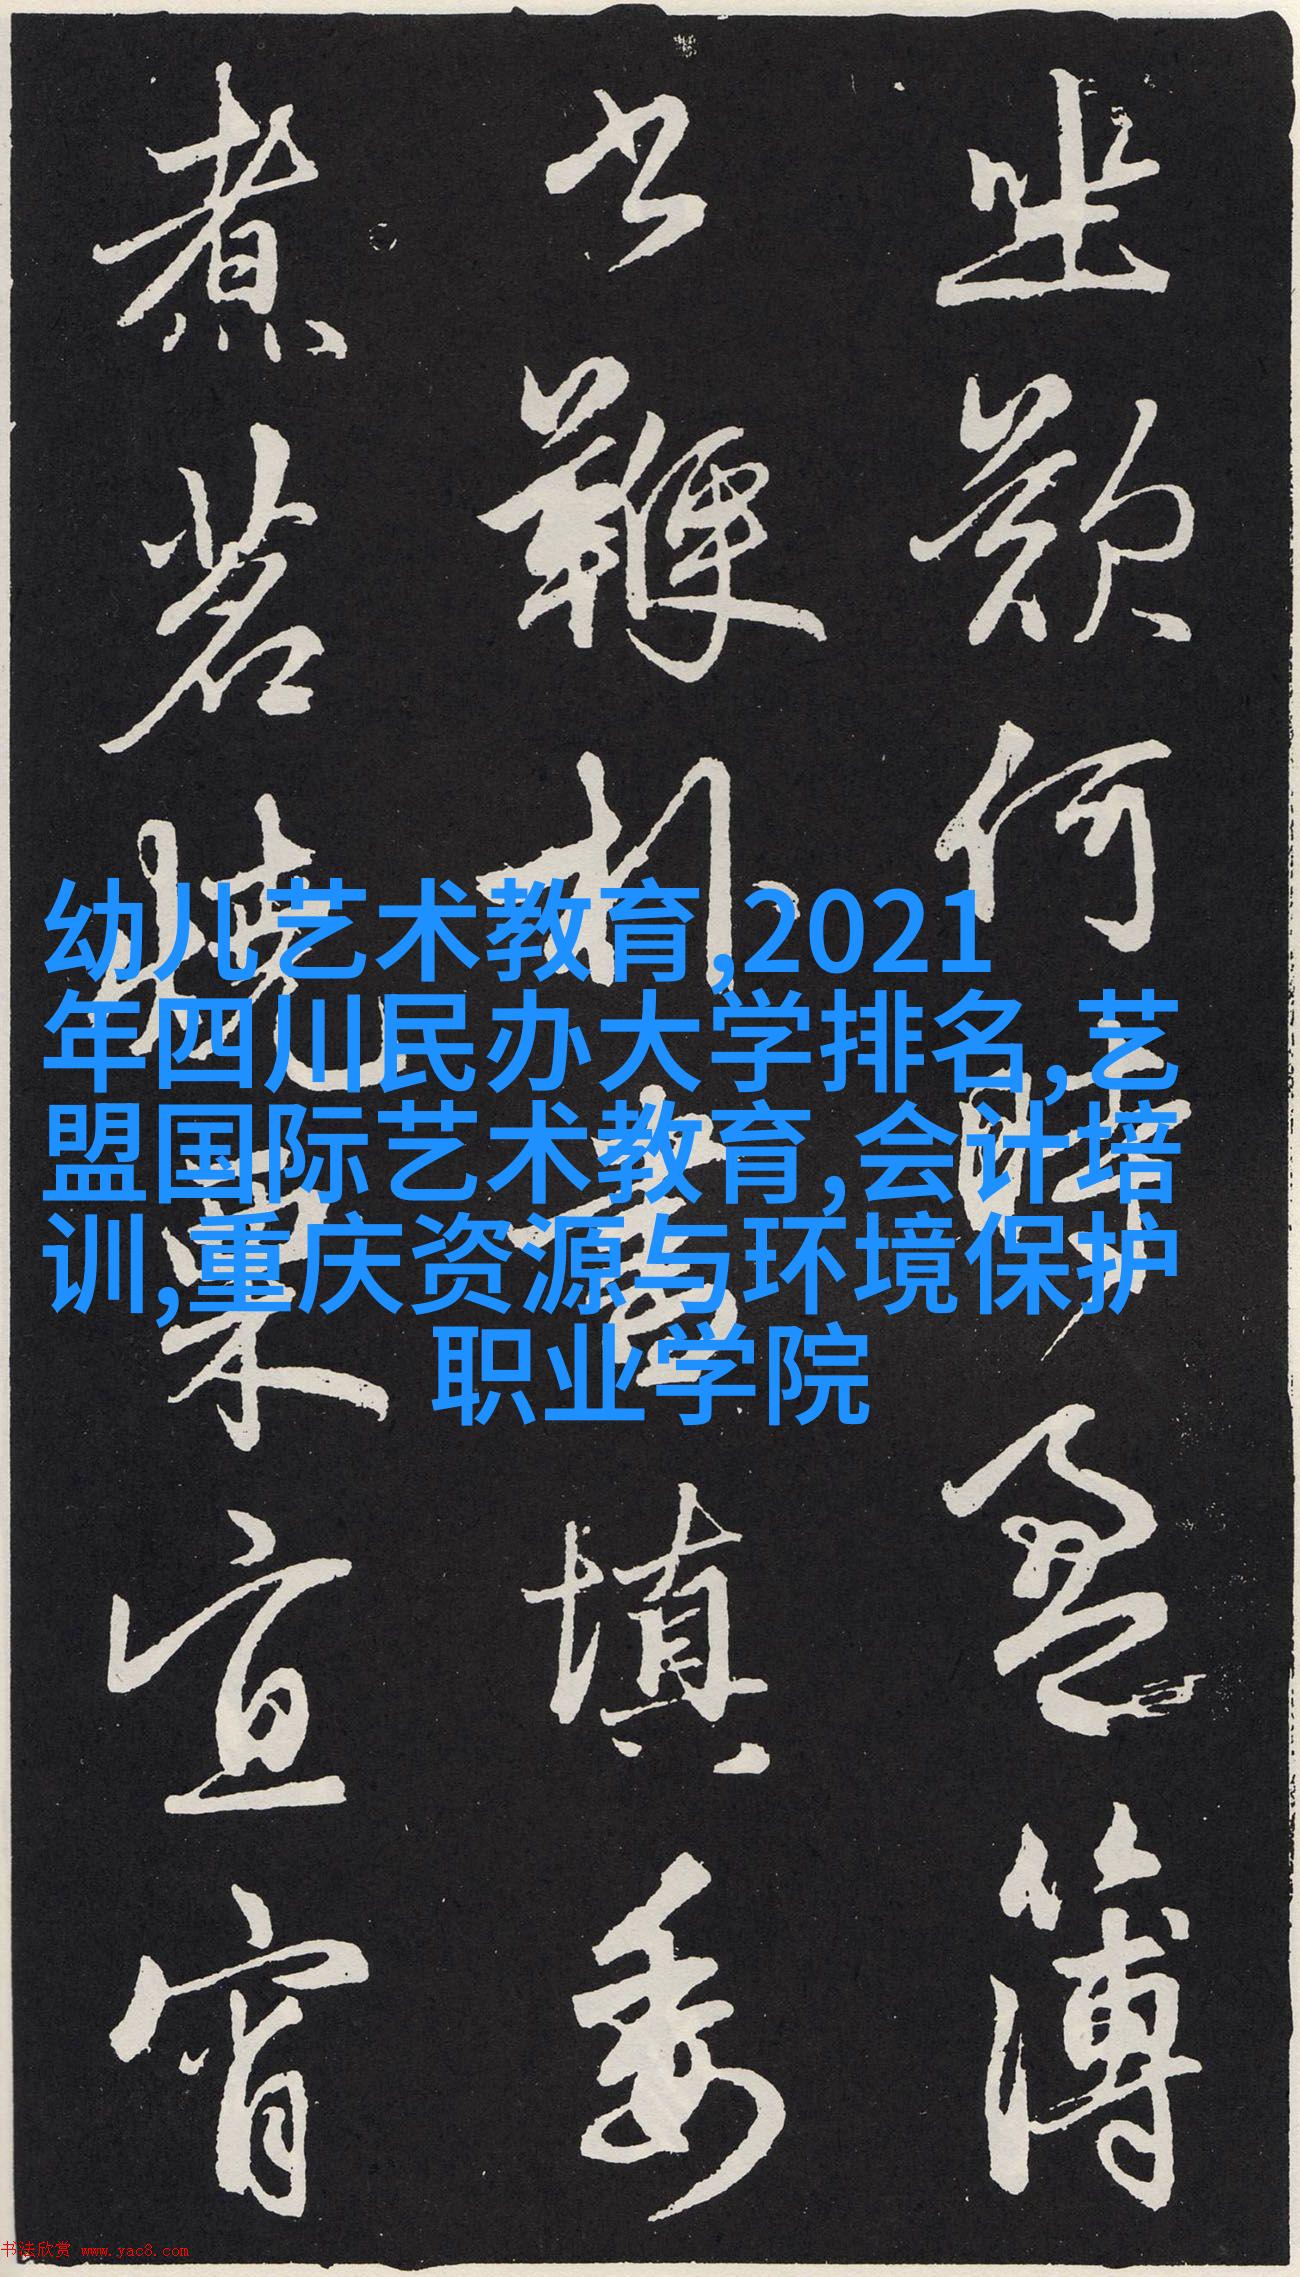 此何時盈簿
書鞭朴晝填委
煮茗燒栗宜宵
幼儿艺术教育,2021
年四川民办大学排名,艺
盟国际艺术教育,会计培
训,重庆资源与环境保护
职业学院
书法欣赏 www.yac8.com